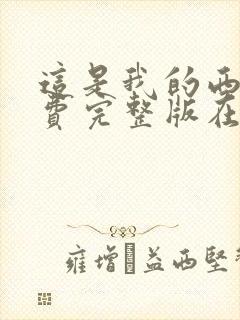 這是我的西
費完整版在
雍增·益西堅